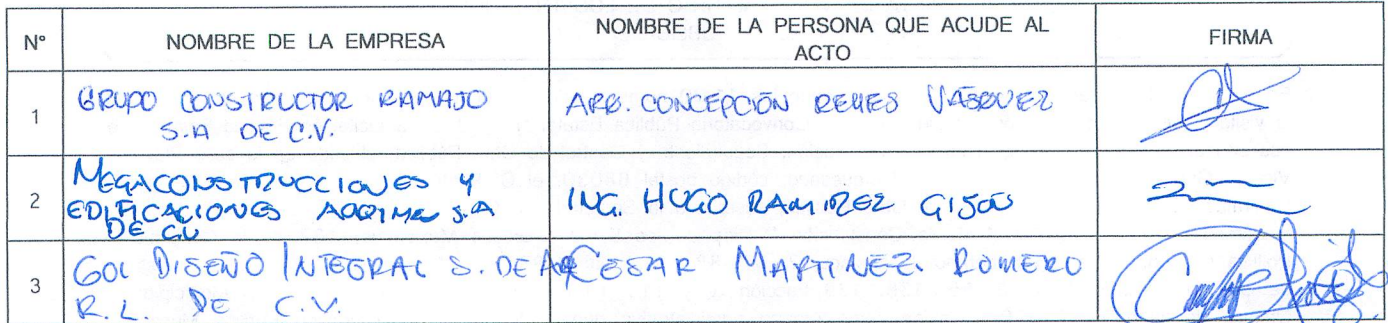 N° NOMBRE DE LA EMPRESA NOMBRE DE LA PERSONA QUE ACUDE AL ACTO FIRMA
1 GRUPO CONSTRUCTOR RAMAJO ARQ. CONCEPCIÓN REYES VÁSQUEZ
S.A DE C.V.
2 MEGACONSTRUCCIONES Y
EDIFICACIONES S.A ING. HUGO RAMIREZ GISON
DE CV
3 GOL DISEÑO INTEGRAL S. DE CESAR MARTINEZ ROMERO
R.L. DE C.V.